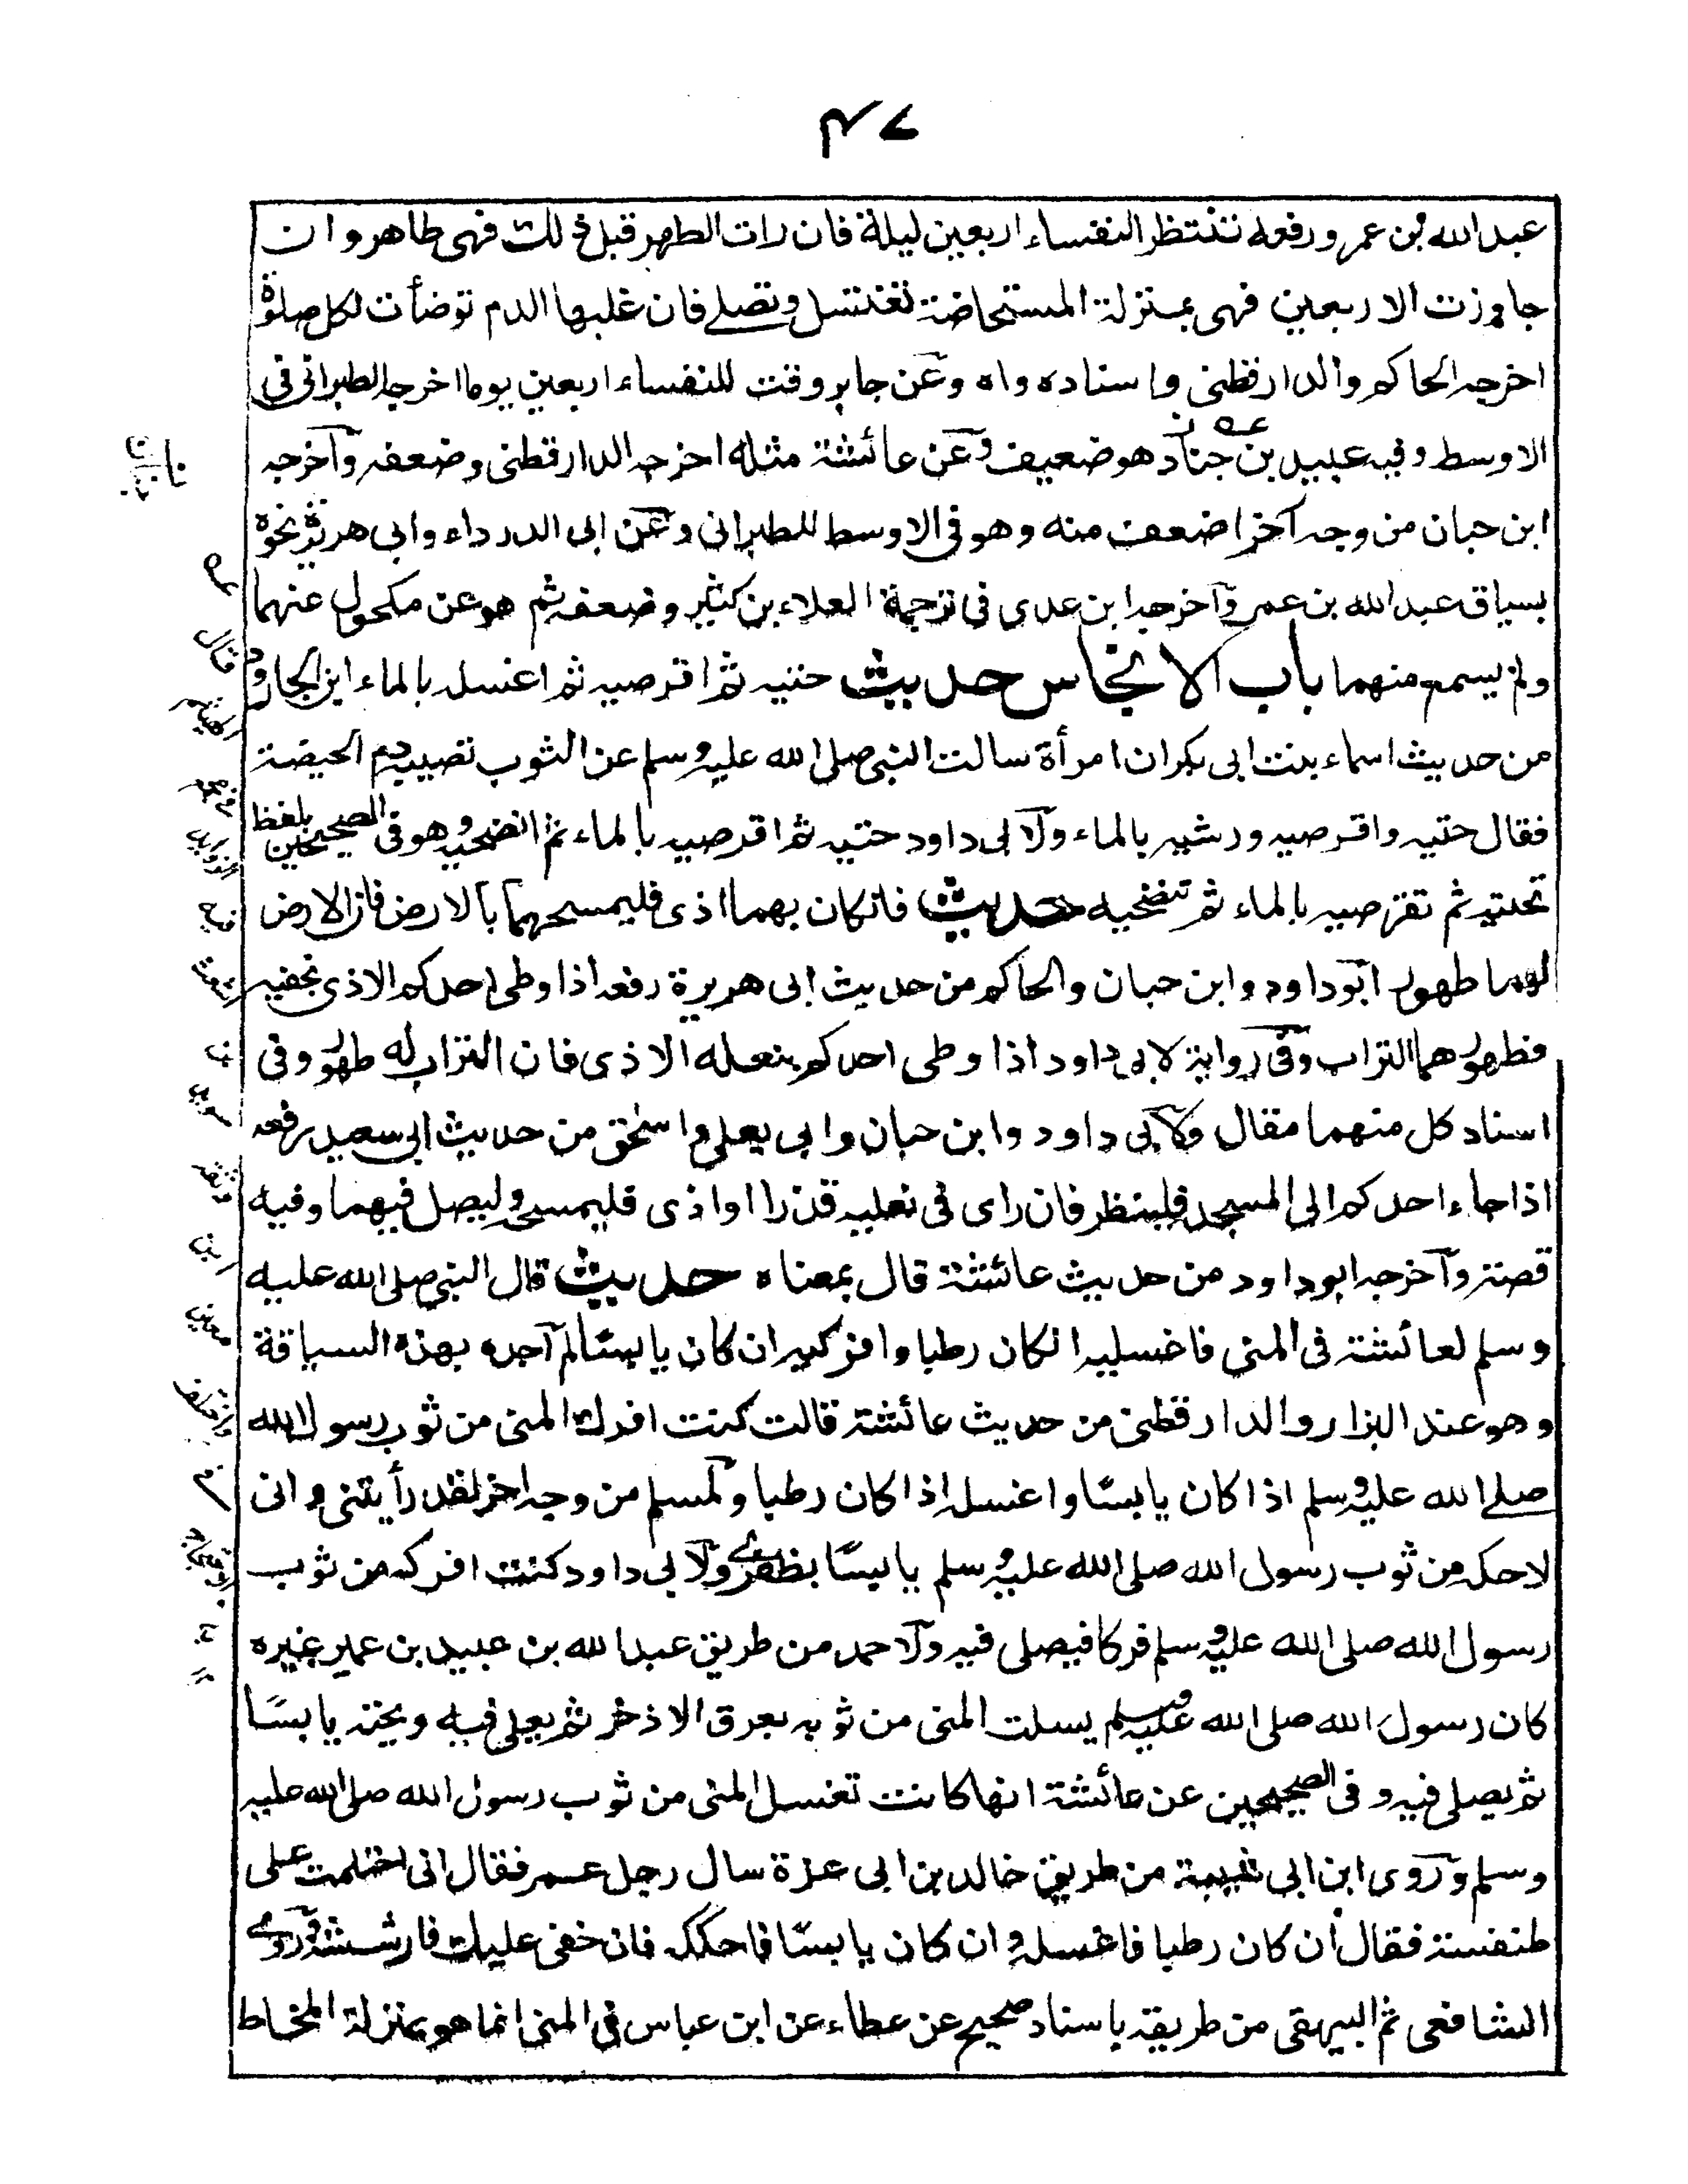 ٤٧
عبدالله بن عمر ورفعه تنتظر النفساء اربعين ليلة فان رات الطهر قبل ذلك فهى طاهر وان
جاوزت الاربعين فهى بمنزلة المستحاضة تغتسل وتصلے فان غلبها الدم توضأت لكل صلوة
اخرجه الحاكم والدارقطنى واسناده واه وعن جابر وقت للنفساء اربعين يوما اخرجه الطبرانى فى
الاوسط وفيه عبيد بن جناد هو ضعيف وعن عائشة مثله اخرجه الدارقطنى وضعفه وآخرجه
ابن حبان من وجه آخر اضعف منه وهو فى الاوسط للطبرانى وعن ابى الدرداء وابى هريرة نحوه
بسياق عبدالله بن عمر وآخرجه ابن عدى فى ترجمة العلاء بن كثير وضعفه ثم هو عن مكحول عنهما
ولم يسمع منهما باب الانجاس حديث حتيه ثم اقرصيه ثم اغسله بالماء ابن الجارود
من حديث اسماء بنت ابى بكر ان امرأة سالت النبى صلى الله عليه وسلم عن الثوب تصيبه دم الحيضة
فقال حتيه واقرصيه ورشيه بالماء ولآبى داود حتيه ثم اقرصيه بالماء ثم انضحيه وهو فى الصحيحين بلفظ
تحتيه ثم تقرصيه بالماء ثم تنضحيه حديث فان كان بهما اذى فليمسحهما بالارض فان الارض
لهما طهور ابوداود وابن حبان والحاكم من حديث ابى هريرة رفعه اذا وطى احدكم الاذى بخفيه
فطهورهما التراب وفى رواية لابى داود اذا وطى احدكم بنعله الاذى فان التراب له طهور وفى
اسناد كل منهما مقال ولآبى داود وابن حبان وابى يعلى واسحق من حديث ابى سعيد رفعه
اذا جاء احدكم الى المسجد فلينظر فان راى فى نعليه قذرا او اذى فليمسحه وليصل فيهما وفيه
قصة وآخرجه ابوداود من حديث عائشة قال بمعناه حديث قال النبى صلى الله عليه
وسلم لعائشة فى المنى فاغسليه انكان رطبا وافركيه ان كان يابسًا لم آجده بهذه السياقة
وهو عند البزار والدارقطنى من حديث عائشة قالت كنت افرك المنى من ثوب رسول الله
صلے الله عليه وسلم اذا كان يابسًا واغسله اذا كان رطبا ولمسلم من وجه اخر لقد رأيتنى وانى
لاحكه من ثوب رسول الله صلى الله عليه وسلم يابسًا بظفرے ولآبى داود كنت افركه من ثوب
رسول الله صلى الله عليه وسلم فركا فيصلى فيه ولآحمد من طريق عبدالله بن عبيد بن عمير
كان رسول الله صلى الله عليه وسلم يسلت المنى من ثوبه بعرق الاذخر ثم يصلى فيه ويحته يابسًا
ثم يصلى فيه وفى الصحيحين عن عائشة انها كانت تغسل المنى من ثوب رسول الله صلى الله عليه
وسلم وروى ابن ابى شيبة من طريق خالد بن ابى عزة سال رجل عمر فقال انى احتلمت على
طنفسة فقال ان كان رطبا فاغسله وان كان يابسًا فاحككه فان خفى عليك فارششه وروے
الشافعى ثم البيهقى من طريقه باسناد صحيح عن عطاء عن ابن عباس فى المنى انما هو بمنزلة المخاط